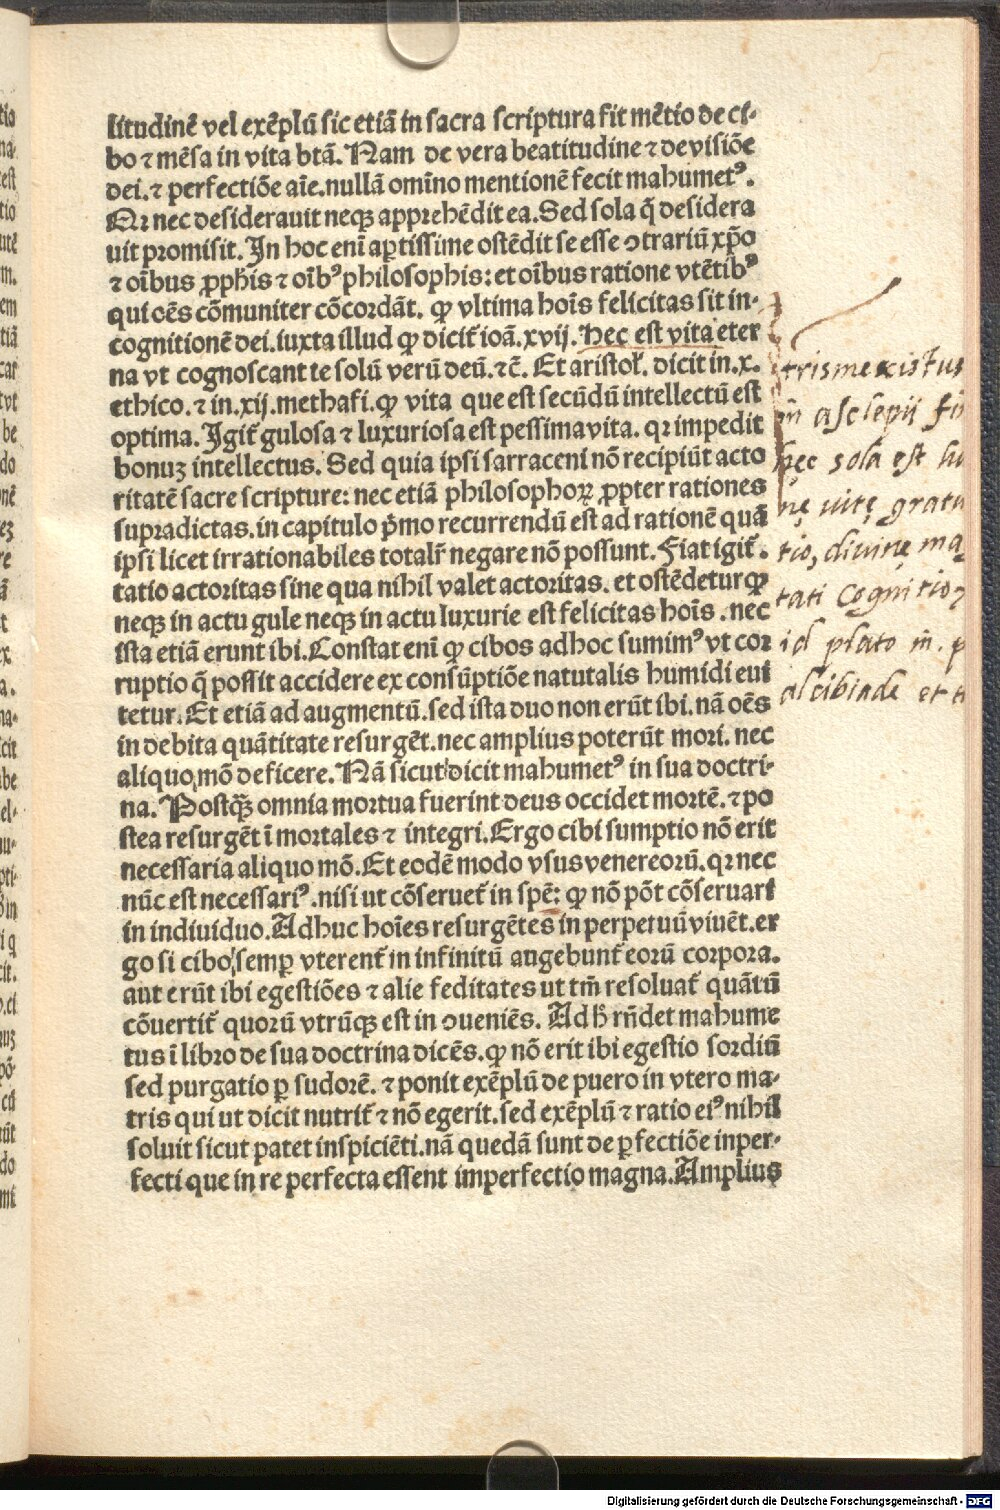 litudinē vel exēplū sic etiā in sacra scriptura fit mētio de ci-
bo ⁊ mēsa in vita btā. Nam de vera beatitudine ⁊ de visiōe
dei. ⁊ perfectiōe aīe. nullā omīno mentionē fecit mahumetꝰ.
Qꝛ nec desiderauit neqꝫ apprehēdit ea. Sed sola q̄ desidera
uit promisit. In hoc enī aꝑtissime ostēdit se esse ↄtrariū xp̄o
⁊ oībus ꝓph̄is ⁊ oībꝰ philosophis: et oībus ratione vtētibꝰ
qui oēs cōmuniter cōcordāt. ꝙ vltima hoīs felicitas sit in-
cognitionē dei. iuxta illud ꝙ dicit̄ ioā. xvij. Hec est vita eter
na vt cognoscant te solū verū deū. ⁊c̄. Et aristoł. dicit in. x.
ethico. ⁊ in. xij. methafi. ꝙ vita que est secūdū intellectū est
optima. Igit̄ gulosa ⁊ luxuriosa est pessima vita. qꝛ impedit
bonuꝫ intellectus. Sed quia ipsi sarraceni nō recipiūt acto
ritatē sacre scripture: nec etiā philosophoꝝ ꝓpter rationes
supradictas. in capitulo p̄mo recurrendū est ad rationē quā
ipsi licet irrationabiles totalr̄ negare nō possunt. Fiat igit̄.
tatio actoritas sine qua nihil valet actoritas. et ostēdetur ꝙ
neqꝫ in actu gule neqꝫ in actu luxurie est felicitas hoīs. nec
ista etiā erunt ibi. Constat enī ꝙ cibos ad hoc sumimꝰ vt cor
ruptio q̄ possit accidere ex consūptiōe natutalis humidi eui
tetur. Et etiā ad augmentū. sed ista duo non erūt ibi. nā oēs
in debita quātitate resurgēt. nec amplius poterūt mori. nec
aliquo mō deficere. Nā sicut dicit mahumetꝰ in sua doctri-
na. Postqꝫ̄ omnia mortua fuerint deus occidet mortē. ⁊ po
stea resurgēt ī mortales ⁊ integri. Ergo cibi sumptio nō erit
necessaria aliquo mō. Et eodē modo vsus venereorū. qꝛ nec
nūc est necessariꝰ. nisi ut cōseruet̄ in spē: ꝙ nō pōt cōseruari
in indiuiduo. Adhuc hoīes resurgētes in perpetuū viuēt. er
go si cibo semꝑ vterent̄ in infinitū augebunt̄ eorū corpora.
aut erūt ibi egestiōes ⁊ alie feditates ut tm̄ resoluat̄ quātū
cōuertit̄ quorū vtrūqꝫ est in ↄueniēs. Ad h̄ rn̄det mahume
tus ī libro de sua doctrina dicēs. ꝙ nō erit ibi egestio sordiū
sed purgatio ꝑ sudorē. ⁊ ponit exēplū de puero in vtero ma-
tris qui ut dicit nutrit̄ ⁊ nō egerit. sed exēplū ⁊ ratio eiꝰ nihil
soluit sicut patet inspiciēti. nā quedā sunt de ꝑfectiōe inper-
fecti que in re perfecta essent imperfectio magna. Amplius
trismexistus
in̄ asclepii
hęc sola est
nę uitę gratu
tio, diuinę ma
tati cognitio
id plato in̄. p
alcibiade et
Digitalisierung gefördert durch die Deutsche Forschungsgemeinschaft - DFG